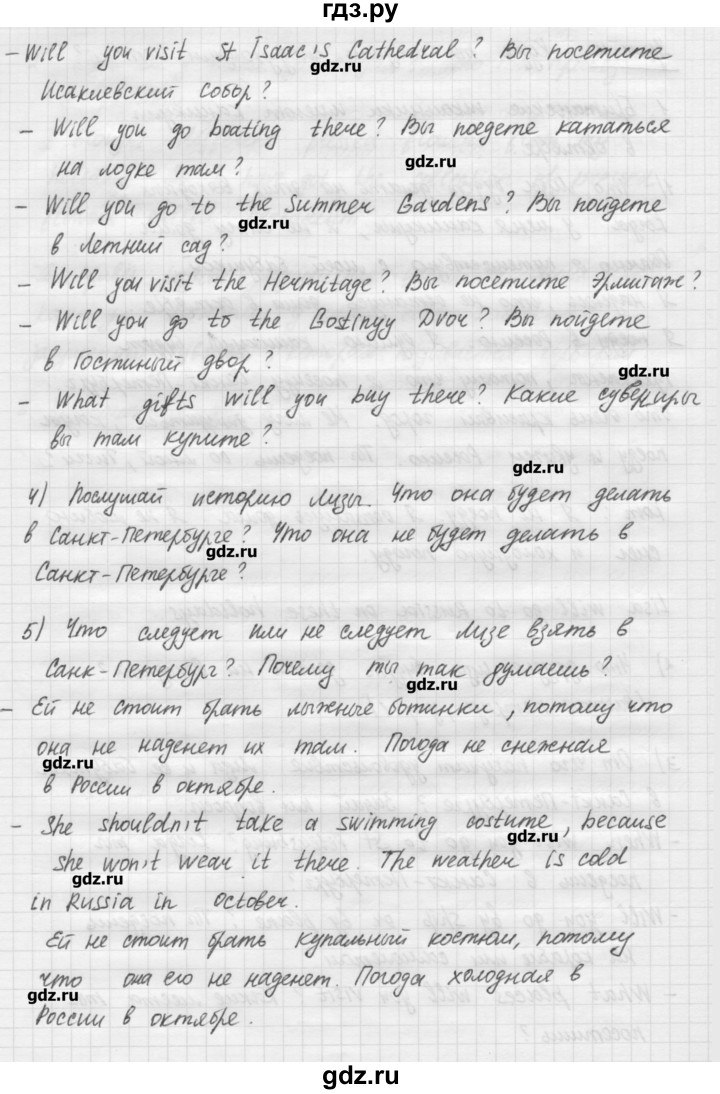 гдз.ру
- Will you visit St Isaac's Cathedral? Вы посетите
gdz.ru
Исакиевский собор?
- Will you go boating there? Вы поедете кататься
на лодке там?
gdz.ru
- Will you go to the Summer Gardens? Вы пойдете
gdz.ru
в Летний сад?
- Will you visit the Hermitage? Вы посетите Эрмитаж?
- Will you go to the Gostinyy Dvor? Вы пойдете
в Гостиный двор?
gdz.ru
- What gifts will you buy there? Какие сувениры
вы там купите?
gdz.ru
4) Послушай историю Лизы. Что она будет делать
в Санкт-Петербурге? Что она не будет делать в
gdz.ru
Санкт-Петербурге?
5) Что следует или не следует Лизе взять в
Санк-Петербург? Почему ты так думаешь?
gdz.ru
- Ей не стоит брать лыжные ботинки, потому что
она не наденет их там. Погода не снежная
gdz.ru
в России в октябре.
- She shouldn't take a swimming costume, because
gdz.ru
she won't wear it there. The weather is cold
gdz.ru
in Russia in october.
Ей не стоит брать купальный костюм, потому
что она его не наденет. Погода холодная в
gdz.ru
России в октябре.
gdz.ru